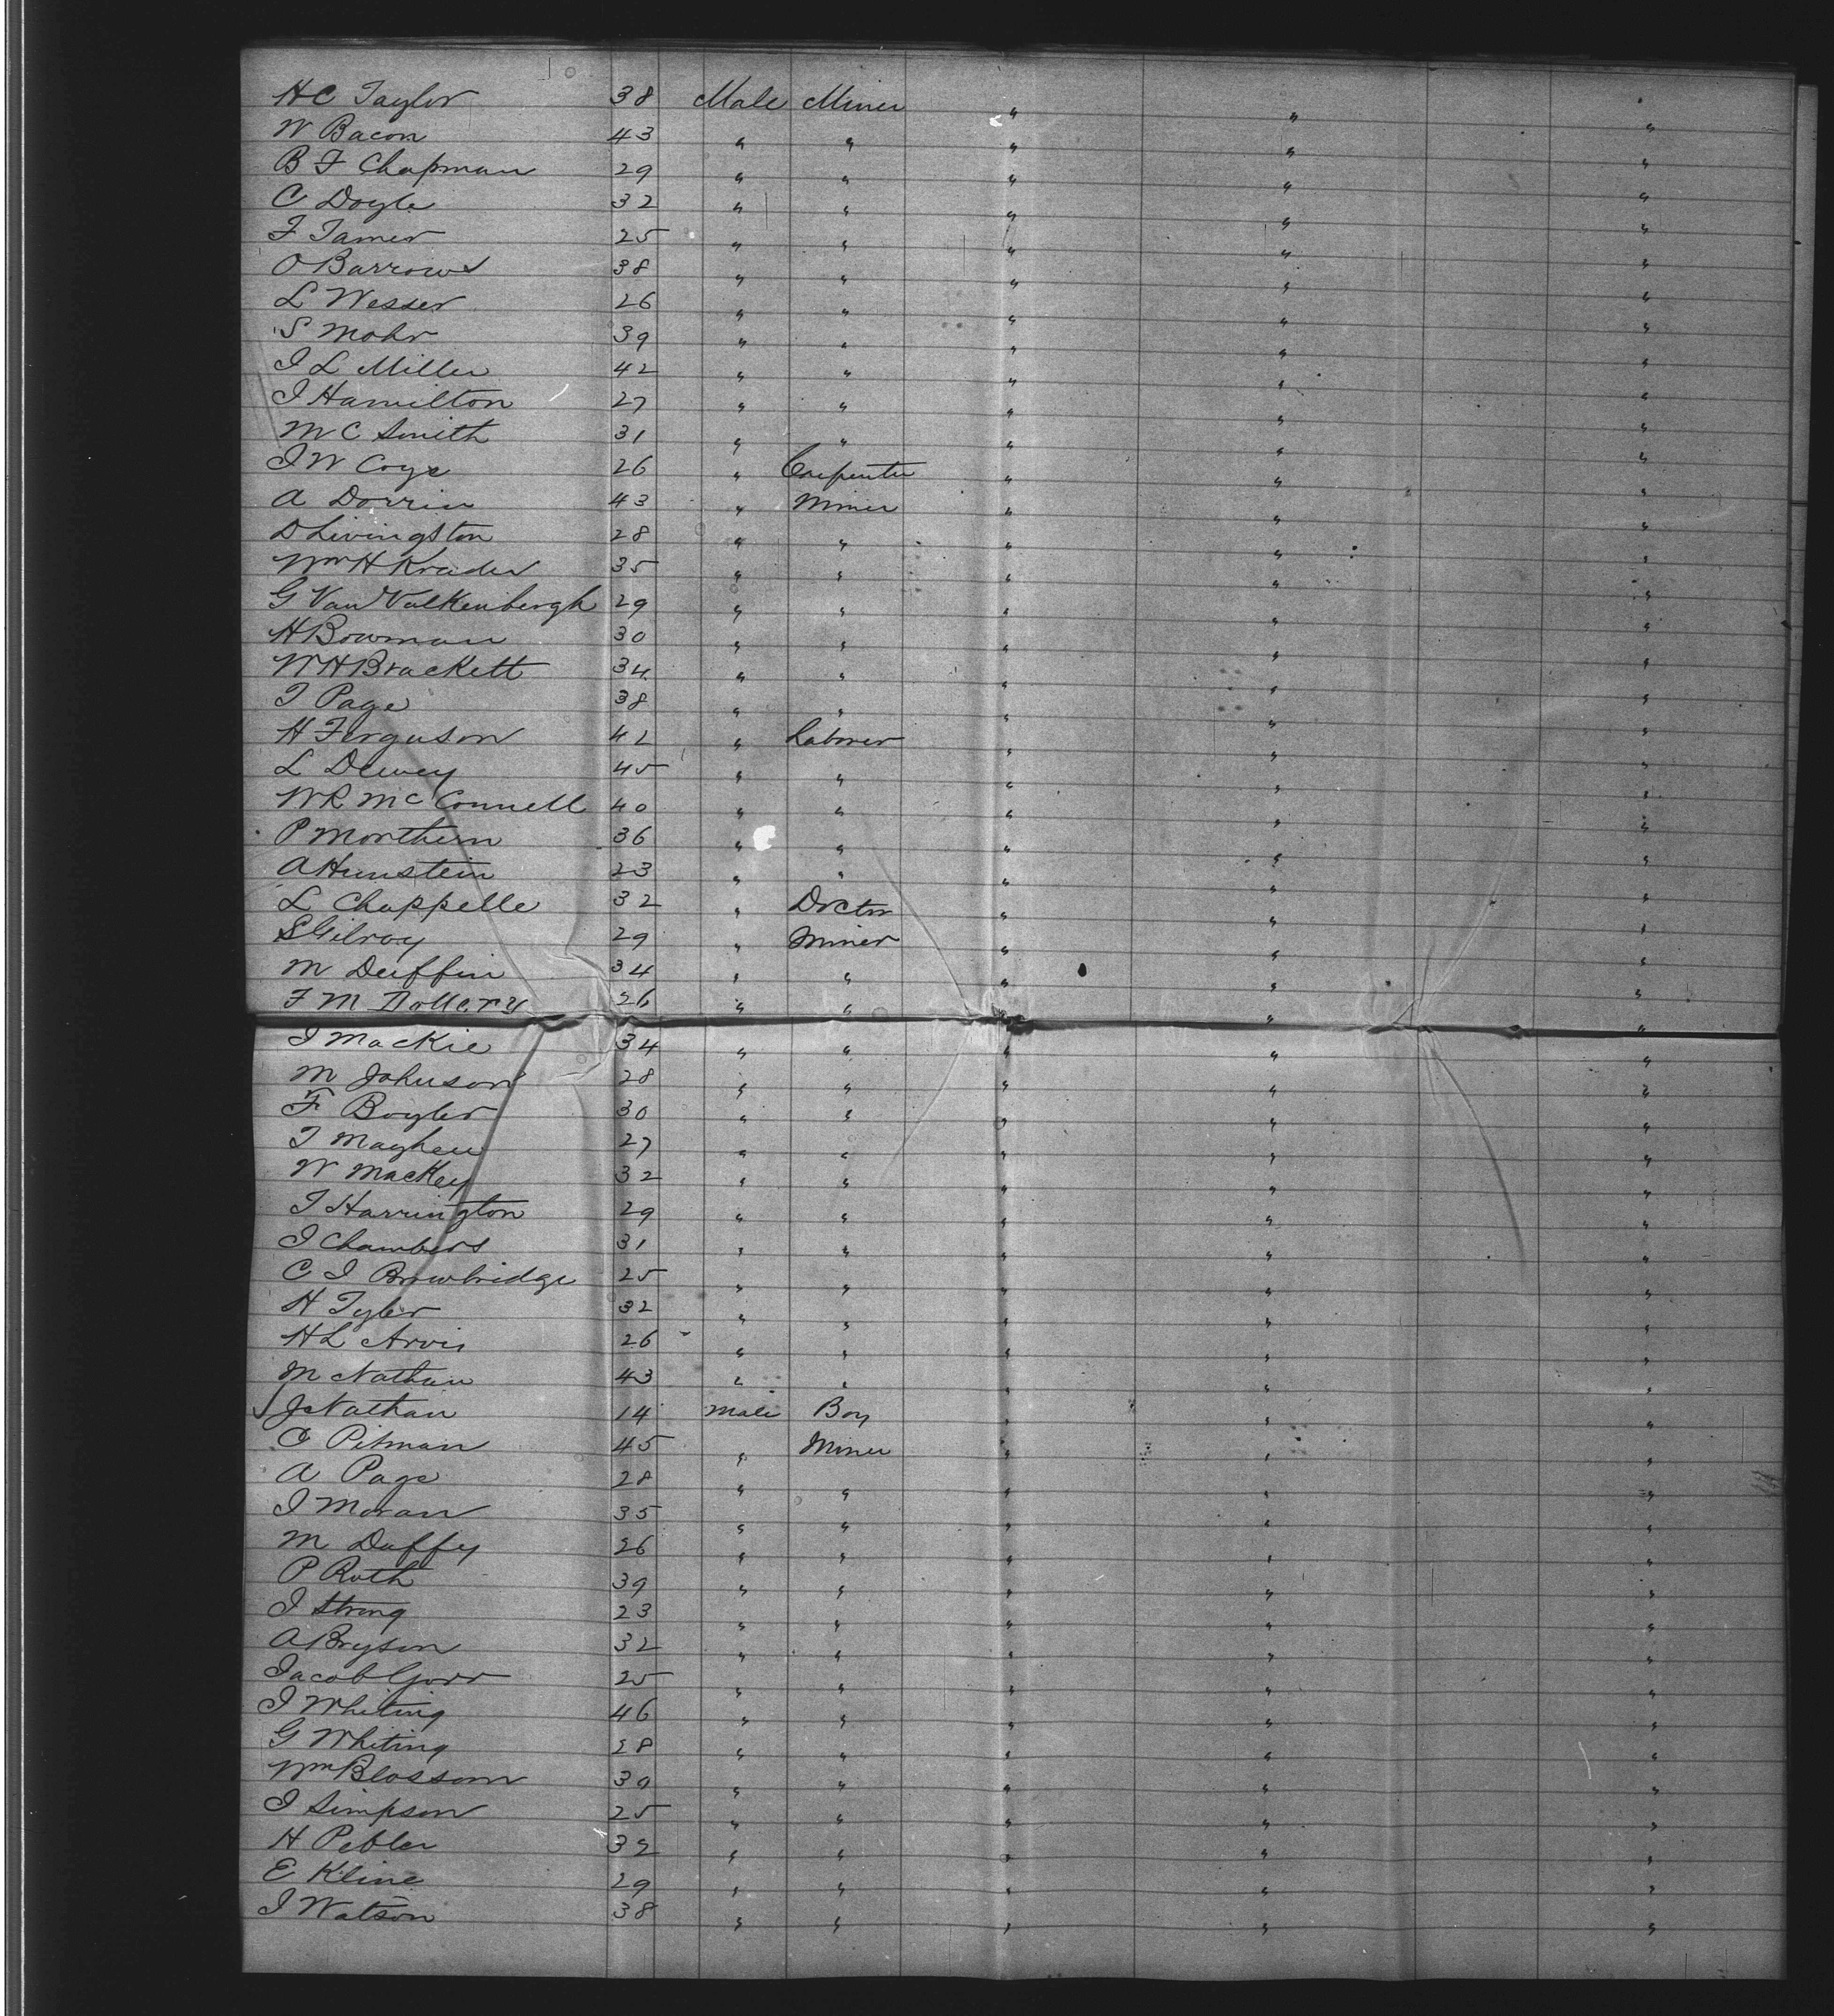 H C Taylor 38 Male Miner " " "
W Bacon 43 " " " " "
B F Chapman 29 " " " " "
C Doyle 32 " " " " "
F Tamer 25 " " " " "
O Barrows 38 " " " " "
L Wesser 26 " " " " "
S Mohr 39 " " " " "
J L Miller 42 " " " " "
J Hamilton 27 " " " " "
M C Smith 31 " " " " "
J W Coye 26 " Carpenter " " "
A Dorrin 43 " Miner " " "
D Livingston 28 " " " " "
Wm H Krader 35 " " " " "
G Van Valkenbergh 29 " " " " "
H Bowman 30 " " " " "
W H Brackett 34 " " " " "
T Page 38 " " " " "
H Ferguson 42 " Laborer " " "
L Dewey 45 " " " " "
W R McConnell 40 " " " " "
P Monthern 36 " " " " "
A Hunstein 23 " " " " "
L Chappelle 32 " Doctor " " "
S Gilroy 29 " Miner " " "
M Duffin 34 " " " " "
F M 26 " " " " "
J Mackie 34 " " " " "
M Johnson 28 " " " " "
F Boyler 30 " " " " "
T Mayhew 27 " " " " "
W Mackey 32 " " " " "
T Harrington 29 " " " " "
J Chambers 31 " " " " "
C J Browbridge 25 " " " " "
H Tyler 32 " " " " "
H L Arvis 26 " " " " "
M Nathan 43 " " " " "
J Nathan 14 Male Boy " " "
O Pitman 45 " Miner " " "
A Page 28 " " " " "
J Moran 35 " " " " "
M Duffy 26 " " " " "
P Ruth 39 " " " " "
J Strong 23 " " " " "
A Bryson 32 " " " " "
Jacob Gorr 25 " " " " "
J Whiting 46 " " " " "
G Whiting 28 " " " " "
Wm Blossom 39 " " " " "
J Simpson 25 " " " " "
H Pebler 32 " " " " "
E Kline 29 " " " " "
J Watson 38 " " " " "